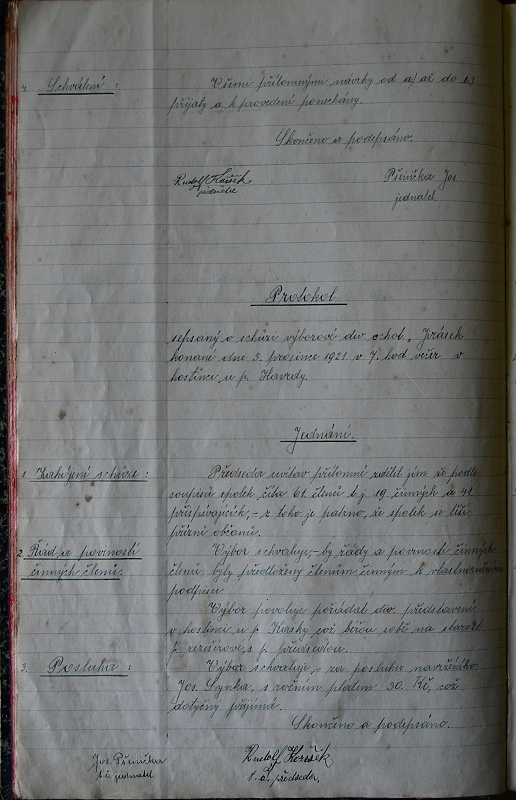 4. Schválení:
Všemi přítomnými návrky od a) až do e.)
přijaty a k provedení ponechány.
Skončeno a podepsáno.
Rudolf
předseda
Pšenička Jos
jednatel
Protokol
sepsaný o schůzi výborové div. ochot. "Jirásek
konané dne 3. prosince 1921 v 7. hod. večer v
hostinci u p. Havrdy.
Jednání.
1. Zahájení schůze:
Předseda uvítav přítomné sdělil jim že podle
soupisu spolek čítá 61. členů t. j. 19. činných a 41.
přispívajících, - z toho je patrno, že spolek se těší
přízni občanů.
2. Řád a povinností
činných členů.
Výbor schvaluje, - by řády a povinosti činných
členů byly předloženy členům činným k vlastnoručnímu
podpisu.
Výbor povoluje pořádat div. představení
v hostinci u p. Kasky což běřou sobě na starost
p. režisér, s p. předsedou.
3. Posluha:
Výbor schvaluje, - za posluhu navrženého
Jos. Synka, s ročním platem 30. Kč, což
dotyčný přijímá.
Skončeno a podepsáno.
Jos. Pšenička
t. č. jednatel
Rudolf
t. č. předseda.